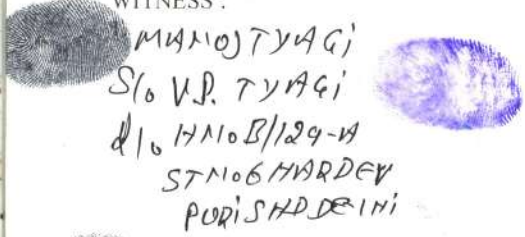 WITNESS :
MANOJ TYAGI
S/o V.P. TYAGI
R/o H No B/129-A
ST No 6 HARDEV
PURI SHD DELHI